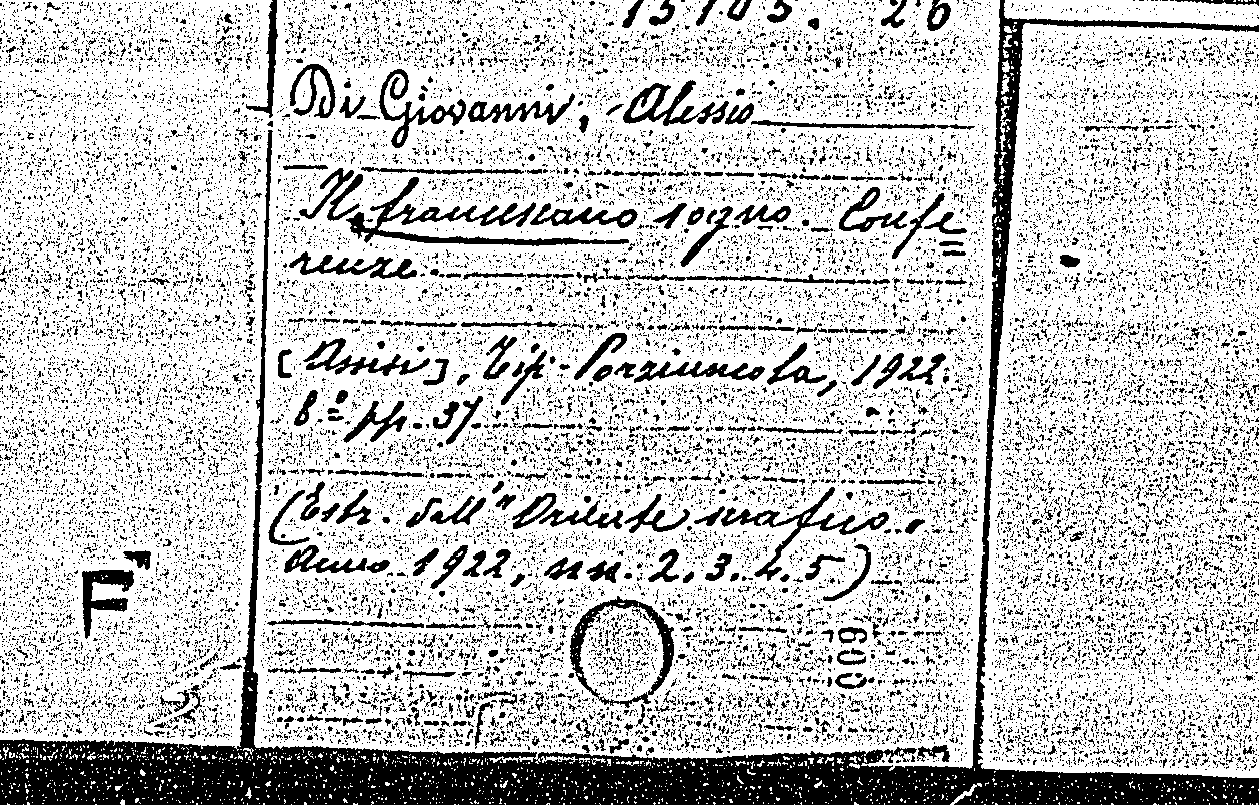 Di Giovanni, Alessio
Il francescano sogno. Confe=
renze.
[Assisi], Tip. Porziuncola, 1922.
8.º pp. 37.
(Estr. dall'"Oriente serafico."
Anno 1922, nn. 2. 3. 4. 5.)
009
F